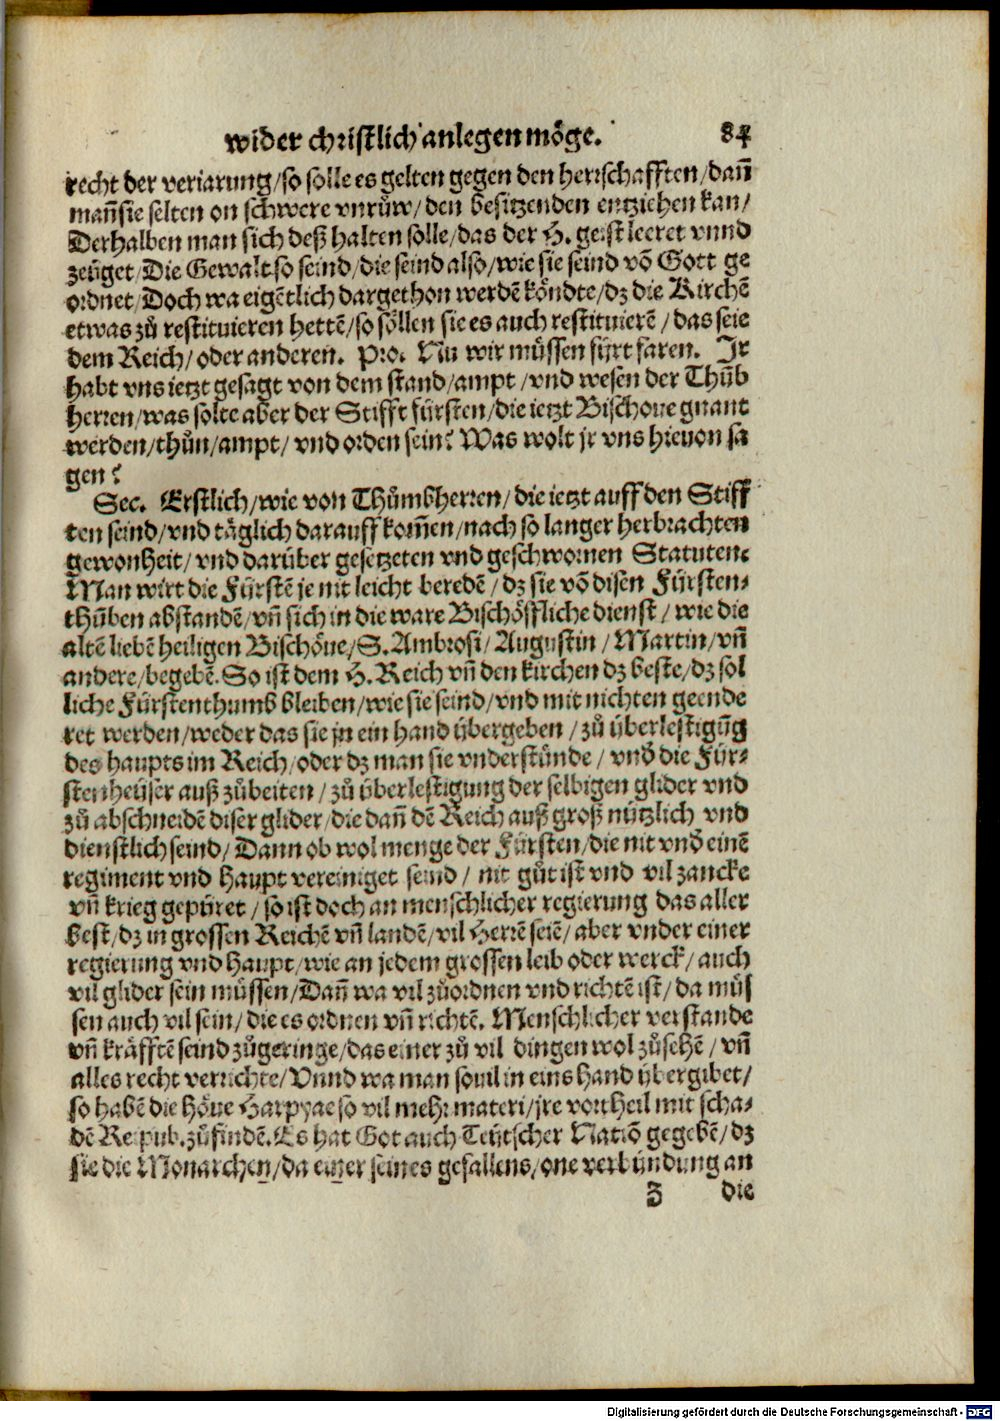 wider christlich anlegen möge. 84
recht der veriarung/so solle es gelten gegen den herrschafften/dañ
mañ sie selten on schwere vnrůw/den besitzenden entziehen kan/
Derhalben man sich deß halten solle/das der H. geist leeret vnnd
zeüget/Die Gewalt so seind/die seind also/wie sie seind võ Gott ge
ordnet/Doch wa eigẽtlich dargethon werdẽ köndte/dz die Kirchẽ
etwas zů restituieren hettẽ/so söllen sie es auch restituierẽ/das seie
dem Reich/oder anderen. Pro. Nu wir müssen fürt faren. Jr
habt vns ietzt gesagt von dem stand/ampt/vnd wesen der Thůb
herren/was solte aber der Stifft fürsten/die ietzt Bischoue gnant
werden/thůn/ampt/vnd orden sein? Was wolt jr vns hieuon sa
gen?
Sec. Erstlich/wie von Thůmbherren/die ietzt auff den Stiff
ten seind/vnd täglich darauff kom̃en/nach so langer herbrachten
gewonheit/vnd darüber gesetzeten vnd geschwornen Statuten.
Man wirt die Fürstẽ je nit leicht beredẽ/dz sie võ disen Fürsten-
thůben abstandẽ/vñ sich in die ware Bischöffliche dienst/wie die
altẽ liebẽ heiligen Bischöue/S. Ambrosi/Augustin/Martin/vñ
andere/begebẽ. So ist dem H. Reich vñ den kirchen dz beste/dz sol
liche Fürstenthumb bleiben/wie sie seind/vnd mit nichten geende
ret werden/weder das sie jn ein hand übergeben/zů überlestigũg
des haupts im Reich/oder dz man sie vnderstünde/vnd̃ die Für-
stenheüser auß zůbeiten/zů überlestigung der selbigen glider vnd
zů abschneidẽ diser glider/die dañ dẽ Reich auß groß nützlich vnd
dienstlich seind/Dann ob wol menge der Fürsten/die nit vnd̃ einẽ
regiment vnd haupt vereiniget seind/nit gůt ist vnd vil zancke
vñ krieg gepüret/so ist doch an menschlicher regierung das aller
best/dz in grossen Reichẽ vñ landẽ/vil Herrẽ seiẽ/aber vnder einer
regierung vnd haupt/wie an jedem grossen leib oder werck/auch
vil glider sein müssen/Dañ wa vil zůordnen vnd richtẽ ist/da müs
sen auch vil sein/die es ordnen vñ richtẽ. Menschlicher verstande
vñ kräfftẽ seind zůgeringe/das einer zů vil dingen wol zůsehẽ/vñ
alles recht verrichte/Vnnd wa man souil in eins hand übergibet/
so habẽ die höue Harpyae so vil mehr materi/jre vortheil mit scha-
dẽ Reipub. zůfindẽ. Es hat Got auch Teütscher Natiõ gegebẽ/dz
sie die Monarchen/da einer seines gefallens/one verbindung an
Z die
Digitalisierung gefördert durch die Deutsche Forschungsgemeinschaft - DFG